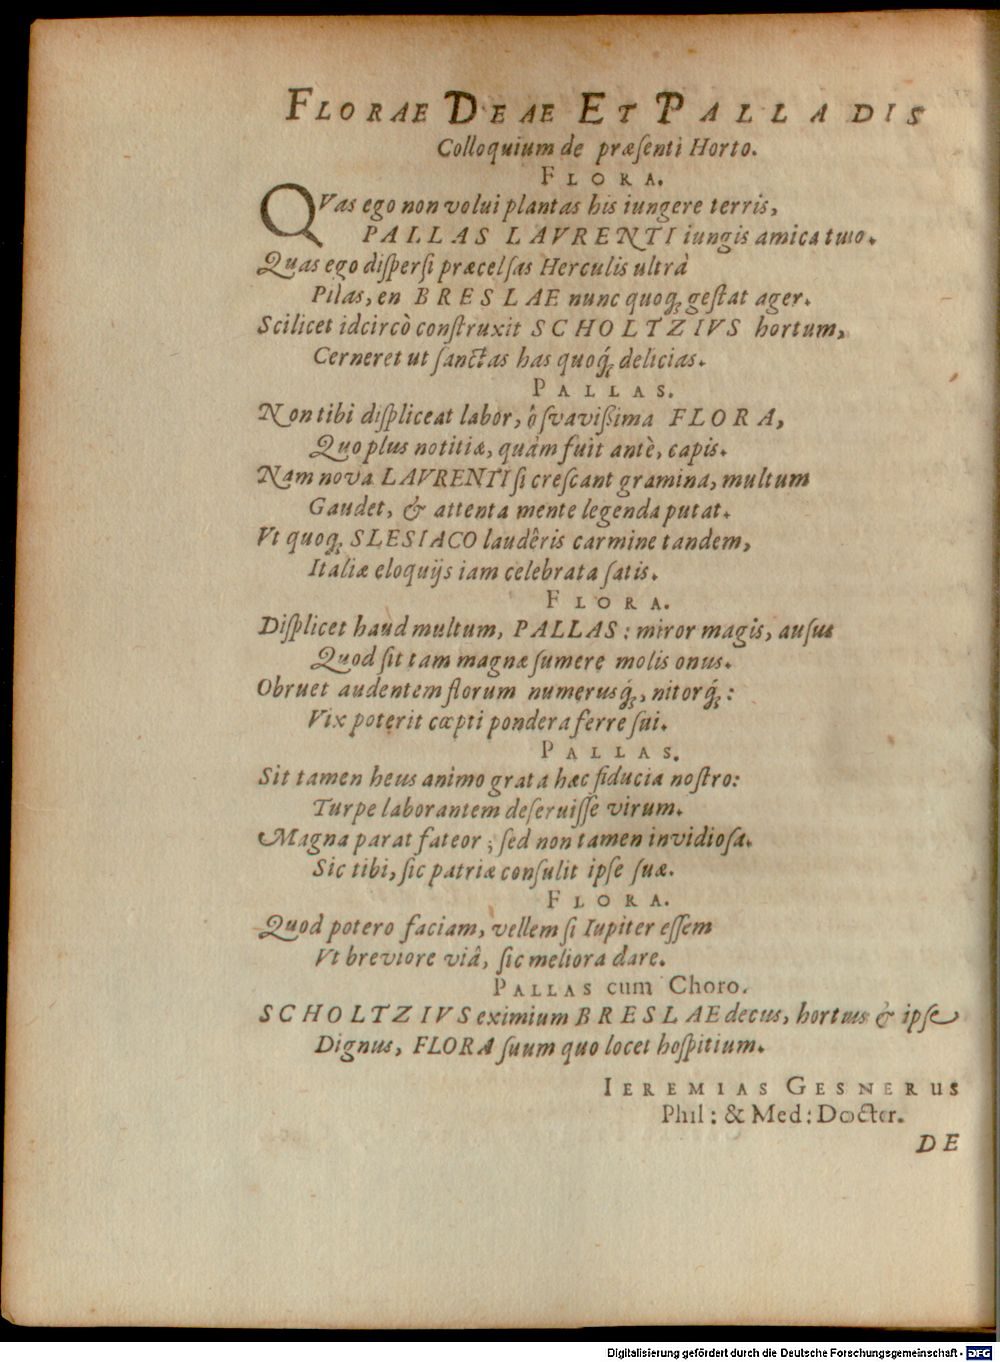 FLORAE DEAE ET PALLADIS
Colloquium de præſenti Horto.
FLORA.
QVas ego non volui plantas his iungere terris,
PALLAS LAVRENTI iungis amica tuo.
Quas ego diſperſi præcelſas Herculis ultrà
Pilas, en BRESLAE nunc quoq́ꝫ geſtat ager.
Scilicet idcircò conſtruxit SCHOLTZIVS hortum,
Cerneret ut ſanctas has quoq́ꝫ delicias.
PALLAS.
Non tibi diſpliceat labor, ô ſvaviſſima FLORA,
Quo plus notitiæ, quàm fuit antè, capis.
Nam nova LAVRENTI ſi creſcant gramina, multum
Gaudet, & attenta mente legenda putat.
Vt quoqꝫ SLESIACO laudêris carmine tandem,
Italiæ eloquijs iam celebrata ſatis.
FLORA.
Diſplicet haud multum, PALLAS: miror magis, auſus
Quod ſit tam magnæ ſumere molis onus.
Obruet audentem florum numerusq́ꝫ, nitorq́ꝫ:
Vix poterit cœpti pondera ferre ſui.
PALLAS.
Sit tamen heus animo grata hæc fiducia noſtro:
Turpe laborantem deſeruiſſe virum.
Magna parat fateor; ſed non tamen invidioſa.
Sic tibi, ſic patriæ conſulit ipſe ſuæ.
FLORA.
Quod potero faciam, vellem ſi Iupiter eſſem
Vt breviore viâ, ſic meliora dare.
PALLAS cum Choro.
SCHOLTZIVS eximium BRESLAE decus, hortus & ipſe
Dignus, FLORA ſuum quo locet hoſpitium.
IEREMIAS GESNERUS
Phil: & Med: Doctor.
DE
Digitalisierung gefördert durch die Deutsche Forschungsgemeinschaft - DFG